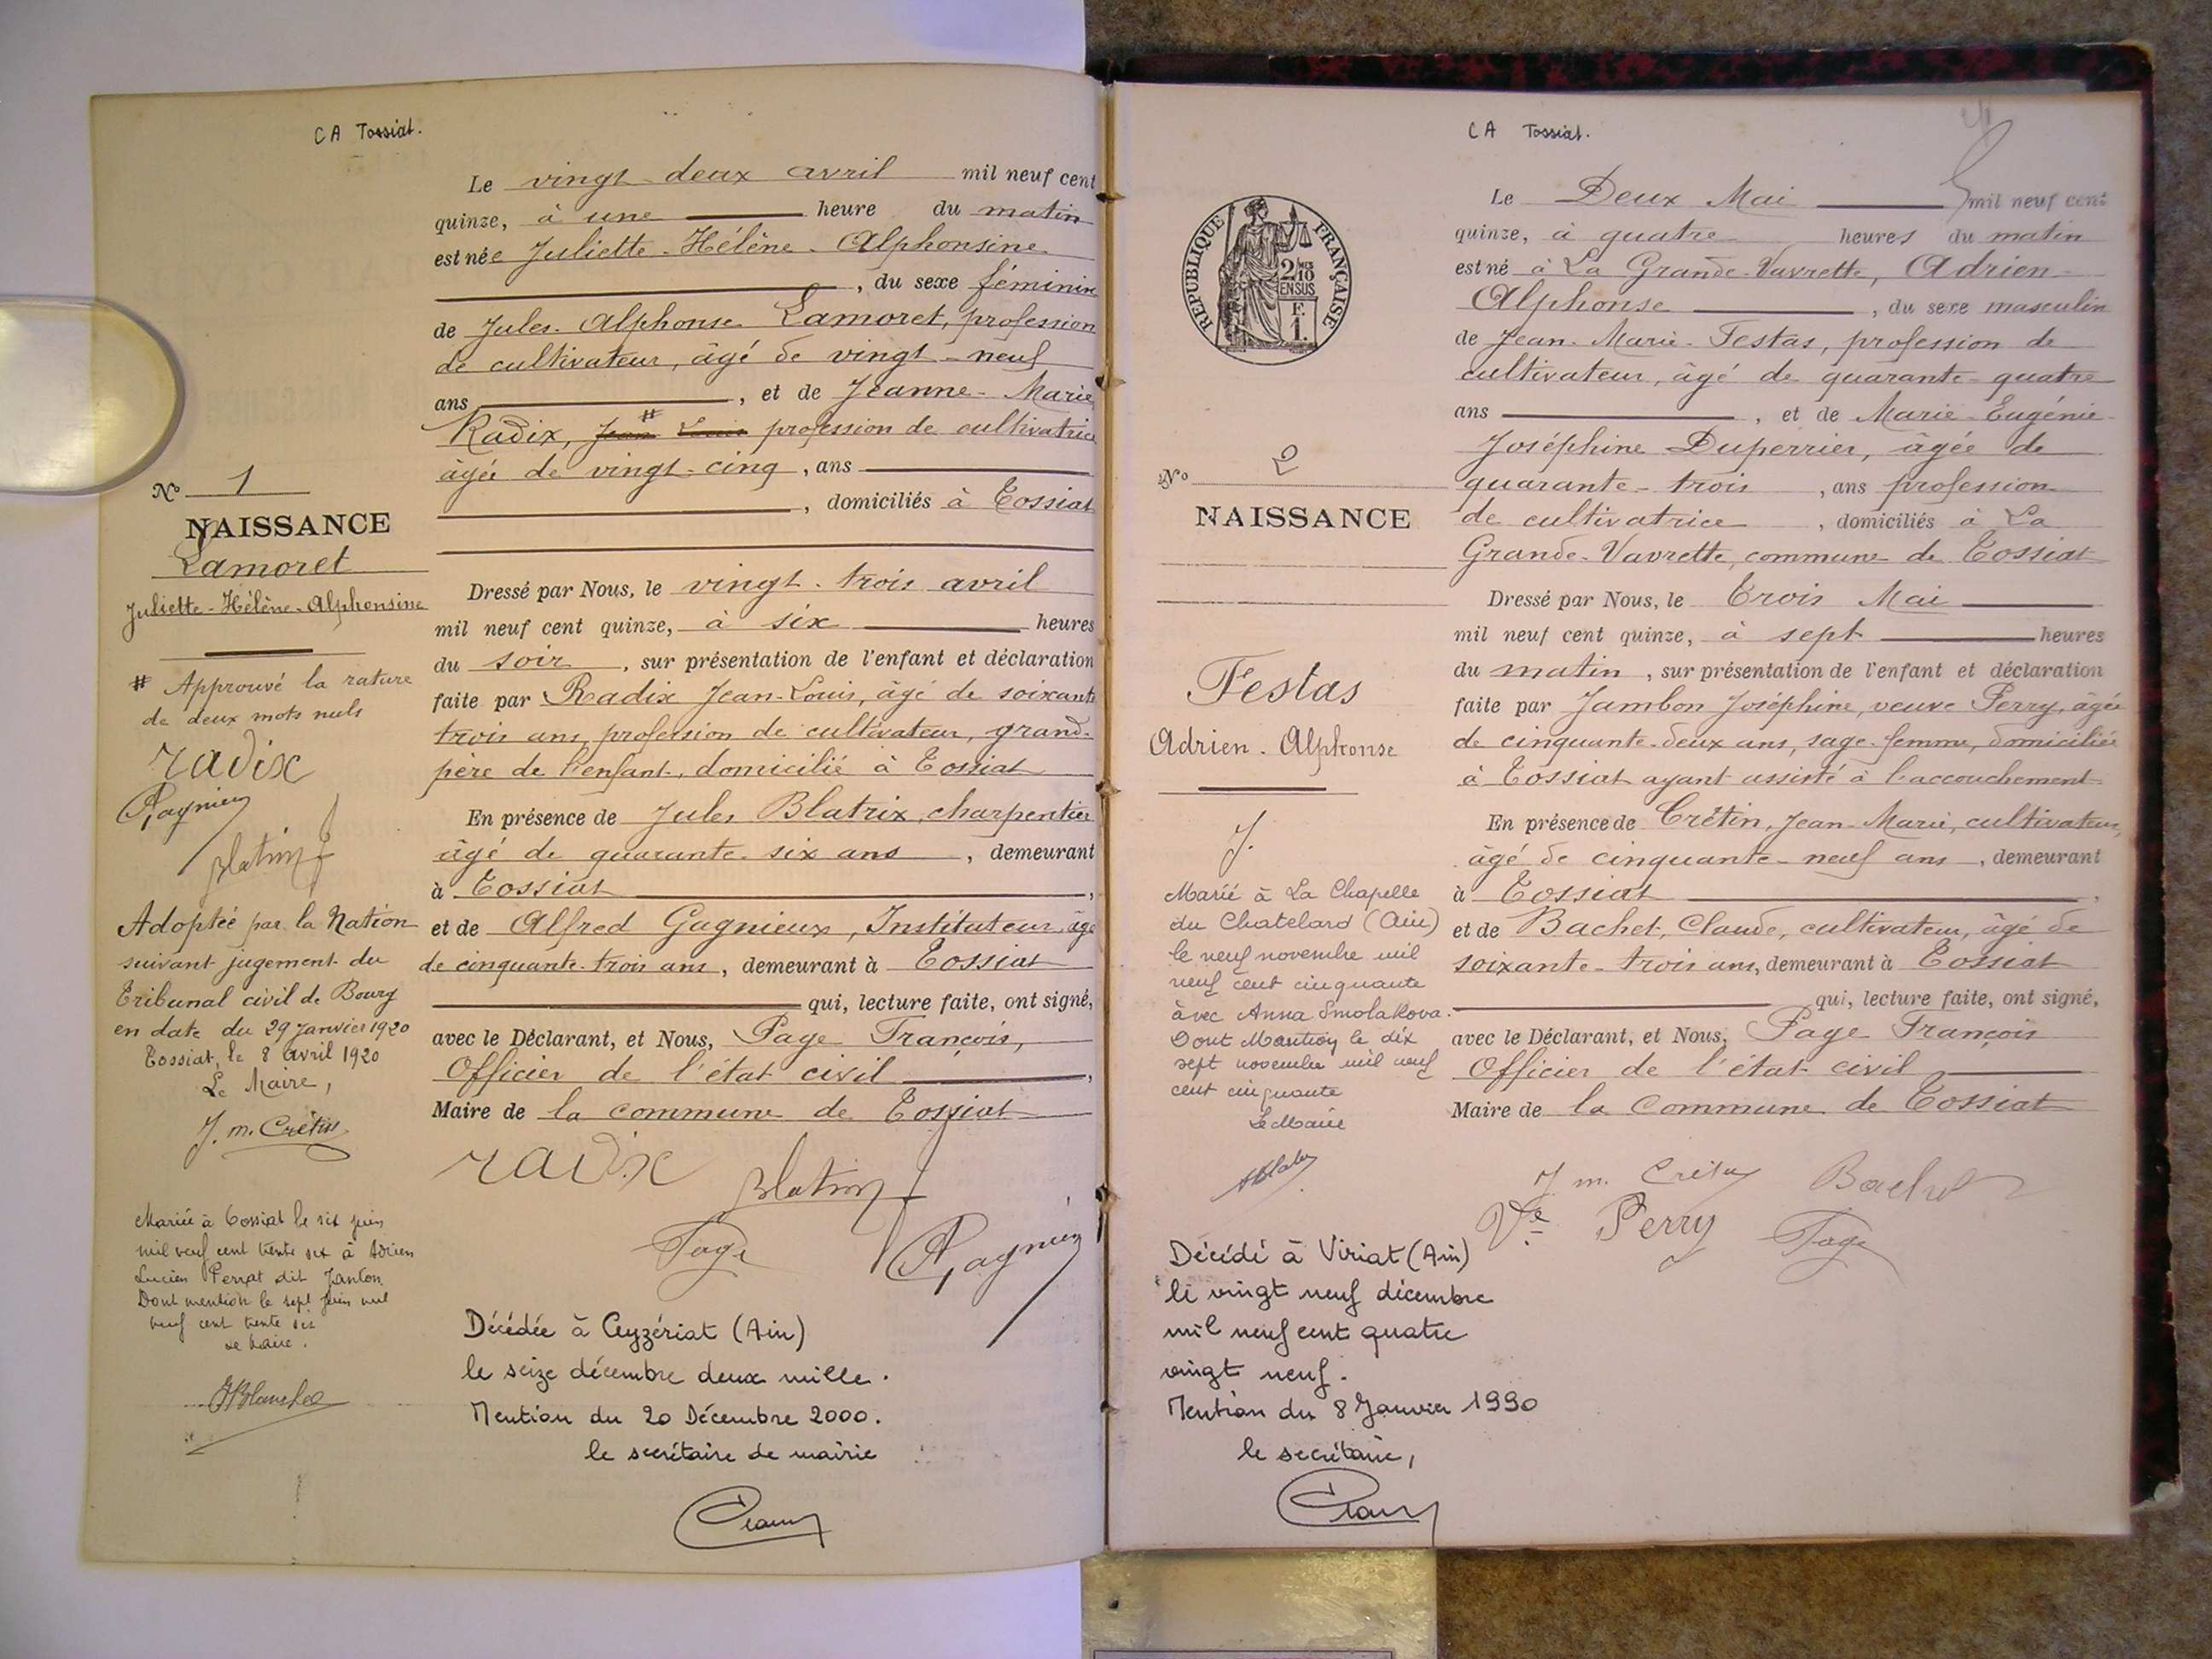 CA Tossiat.
Le vingt-deux avril mil neuf cent
quinze, à une heure du matin
est née Juliette-Hélène-Alphonsine
, du sexe féminin
de Jules-Alphonse Lamoret, profession
de cultivateur, âgé de vingt-neuf
ans, et de Jeanne-Marie
Radix, # Jean Louis profession de cultivatrice
âgée de vingt-cinq, ans
, domiciliés à Tossiat
N° 1
NAISSANCE
Lamoret
Juliette-Hélène-Alphonsine
# Approuvé la rature
de deux mots nuls
radix
Gagnieux
Blatrix
Adoptée par la Nation
suivant jugement du
Tribunal civil de Bourg
en date du 29 Janvier 1920
Tossiat, le 8 avril 1920
Le Maire,
J. m. Crétin
Mariée à Tossiat le six juin
mil neuf cent trente six à Adrien
Lucien Perrat dit Janton
Dont mention le sept juin mil
neuf cent trente six
Le Maire.
Dressé par Nous, le vingt-trois avril
mil neuf cent quinze, à six heures
du soir, sur présentation de l'enfant et déclaration
faite par Radix Jean-Louis, âgé de soixante
trois ans, profession de cultivateur, grand-
père de l'enfant, domicilié à Tossiat
En présence de Jules Blatrix, charpentier
âgé de quarante-six ans, demeurant
à Tossiat,
et de Alfred Gagnieux, Instituteur, âgé
de cinquante-trois ans, demeurant à Tossiat
qui, lecture faite, ont signé,
avec le Déclarant, et Nous, Page François,
Officier de l'état civil,
Maire de la commune de Tossiat
radix Blatrix
Page Gagnieux
Décédée à Ceyzériat (Ain)
le seize décembre deux mille.
Mention du 20 Décembre 2000.
le secrétaire de mairie
CA Tossiat.
RÉPUBLIQUE FRANÇAISE
2/10 MES
EN SUS
F.
1.
Le Deux Mai mil neuf cent
quinze, à quatre heures du matin
est né à La Grande-Vavrette, Adrien-
Alphonse, du sexe masculin
de Jean-Marie-Festas, profession de
cultivateur, âgé de quarante-quatre
ans, et de Marie-Eugénie-
Joséphine Duperrier, âgée de
quarante-trois, ans profession
de cultivatrice, domiciliés à La
Grande-Vavrette, commune de Tossiat
N° 2
NAISSANCE
Festas
Adrien-Alphonse
J.
Marié à La Chapelle
du Chatelard (Ain)
le neuf novembre mil
neuf cent cinquante
avec Anna Smolakova.
Dont Mention le dix
sept novembre mil neuf
cent cinquante
Le Maire
Dressé par Nous, le Trois Mai
mil neuf cent quinze, à sept heures
du matin, sur présentation de l'enfant et déclaration
faite par Jambon Joséphine, veuve Perry, âgée
de cinquante-deux ans, sage-femme, domiciliée
à Tossiat ayant assisté à l'accouchement
En présence de Crétin, Jean-Marie, cultivateur,
âgé de cinquante-neuf ans, demeurant
à Tossiat,
et de Bachet, Claude, cultivateur, âgé de
soixante-trois ans, demeurant à Tossiat
qui, lecture faite, ont signé,
avec le Déclarant, et Nous, Page François
Officier de l'état civil
Maire de la Commune de Tossiat
J m. Crétin Bachet
Vve Perry Page
Décédé à Viriat (Ain)
le vingt neuf décembre
mil neuf cent quatre
vingt neuf.
Mention du 8 Janvier 1990
le secrétaire,